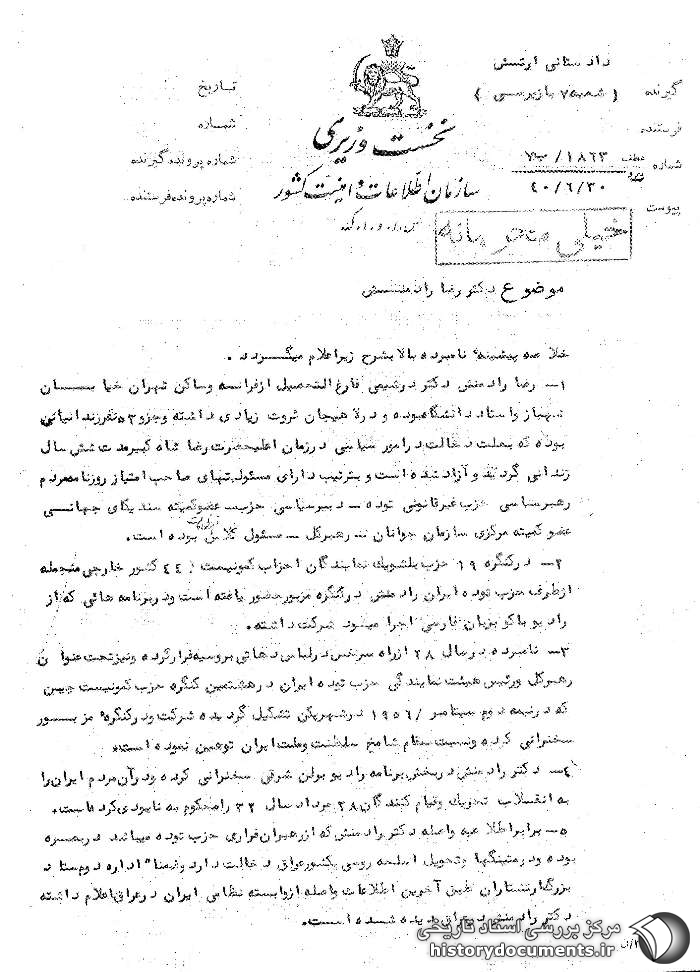 دادستانی ارتش
گیرنده ( شعبه ۷ بازپرسی )
فرستنده
شماره ۱۸۶۳ / ۷
۴۰/۶/۳۰
پیوست
تاریخ
شماره
شماره پرونده گیرنده
شماره پرونده فرستنده
نخست وزیری
سازمان اطلاعات و امنیت کشور
خیلی محرمانه
موضوع دکتر رضا رادمنش
خلاصه پیشینه نامبرده بالا بشرح زیر اعلام میگردد .
۱- رضا رادمنش دکتر درشیمی فارغ التحصیل ازفرانسه وساکن تهران خیابان
شهباز واستاد دانشگاه بوده و درلاهیجان ثروت زیادی داشته وجزو ۵۳ نفر زندانیانی
بوده که بعلت دخالت در امور سیاسی درزمان اعلیحضرت رضا شاه کبیر مدت شش سال
زندانی گردیده و آزاد شده است و بترتیب دارای مسئولیتهای صاحب امتیاز روزنامه مردم
رهبر سیاسی حزب غیرقانونی توده - دبیر سیاسی حزب - عضو کمیته سندیکای جهانی
عضو کمیته مرکزی سازمان جوانان - رهبر کل - مسئول کل بوده است.
۲- درکنگره ۱۹ حزب بلشویک نمایندگان احزاب کمونیست ۴۴ کشور خارجی منجمله
ازطرف حزب توده ایران رادمنش درکنگره مزبور حضور یافته است ودر برنامه هائی که از
رادیو باکو بزبان فارسی اجرا میشود شرکت داشته.
۳- نامبرده درسال ۲۸ ازراه سرخس درلباس دهاتی بروسیه فرار کرده ونیز تحت عنوان
رهبر کل ورئیس هیئت نمایندگی حزب توده ایران درهشتمین کنگره حزب کمونیست چین
که درنیمه دوم سپتامبر /۱۹۵۶ درشهر پکن تشکیل گردیده شرکت ودرکنگره مزبور
سخنرانی کرده ونسبت بمقام شامخ سلطنت وملت ایران توهین نموده است.
۴- دکتر رادمنش دربخش برنامه رادیو برلن شرقی سخنرانی کرده ودرآن مردم ایران را
به انقلاب تحریک وقیام کنندگان ۲۸ مرداد سال ۳۲ را محکوم به نابودی کرده است.
۵- برابر اطلاعیه واصله دکتر رادمنش که ازرهبران فراری حزب توده میباشد دربصره
بوده ودرمتینگها وتحویل اسلحه روسی بکشور عراق دخالت دارد وضمنا" اداره دوم ستاد
بزرگ ارتشتاران طبق آخرین اطلاعات واصله ازوابسته نظامی ایران درعراق اعلام داشته
دکتر رادمنش درعراق دیده شده است.
مرکز بررسی اسناد تاریخی
historydocuments.ir